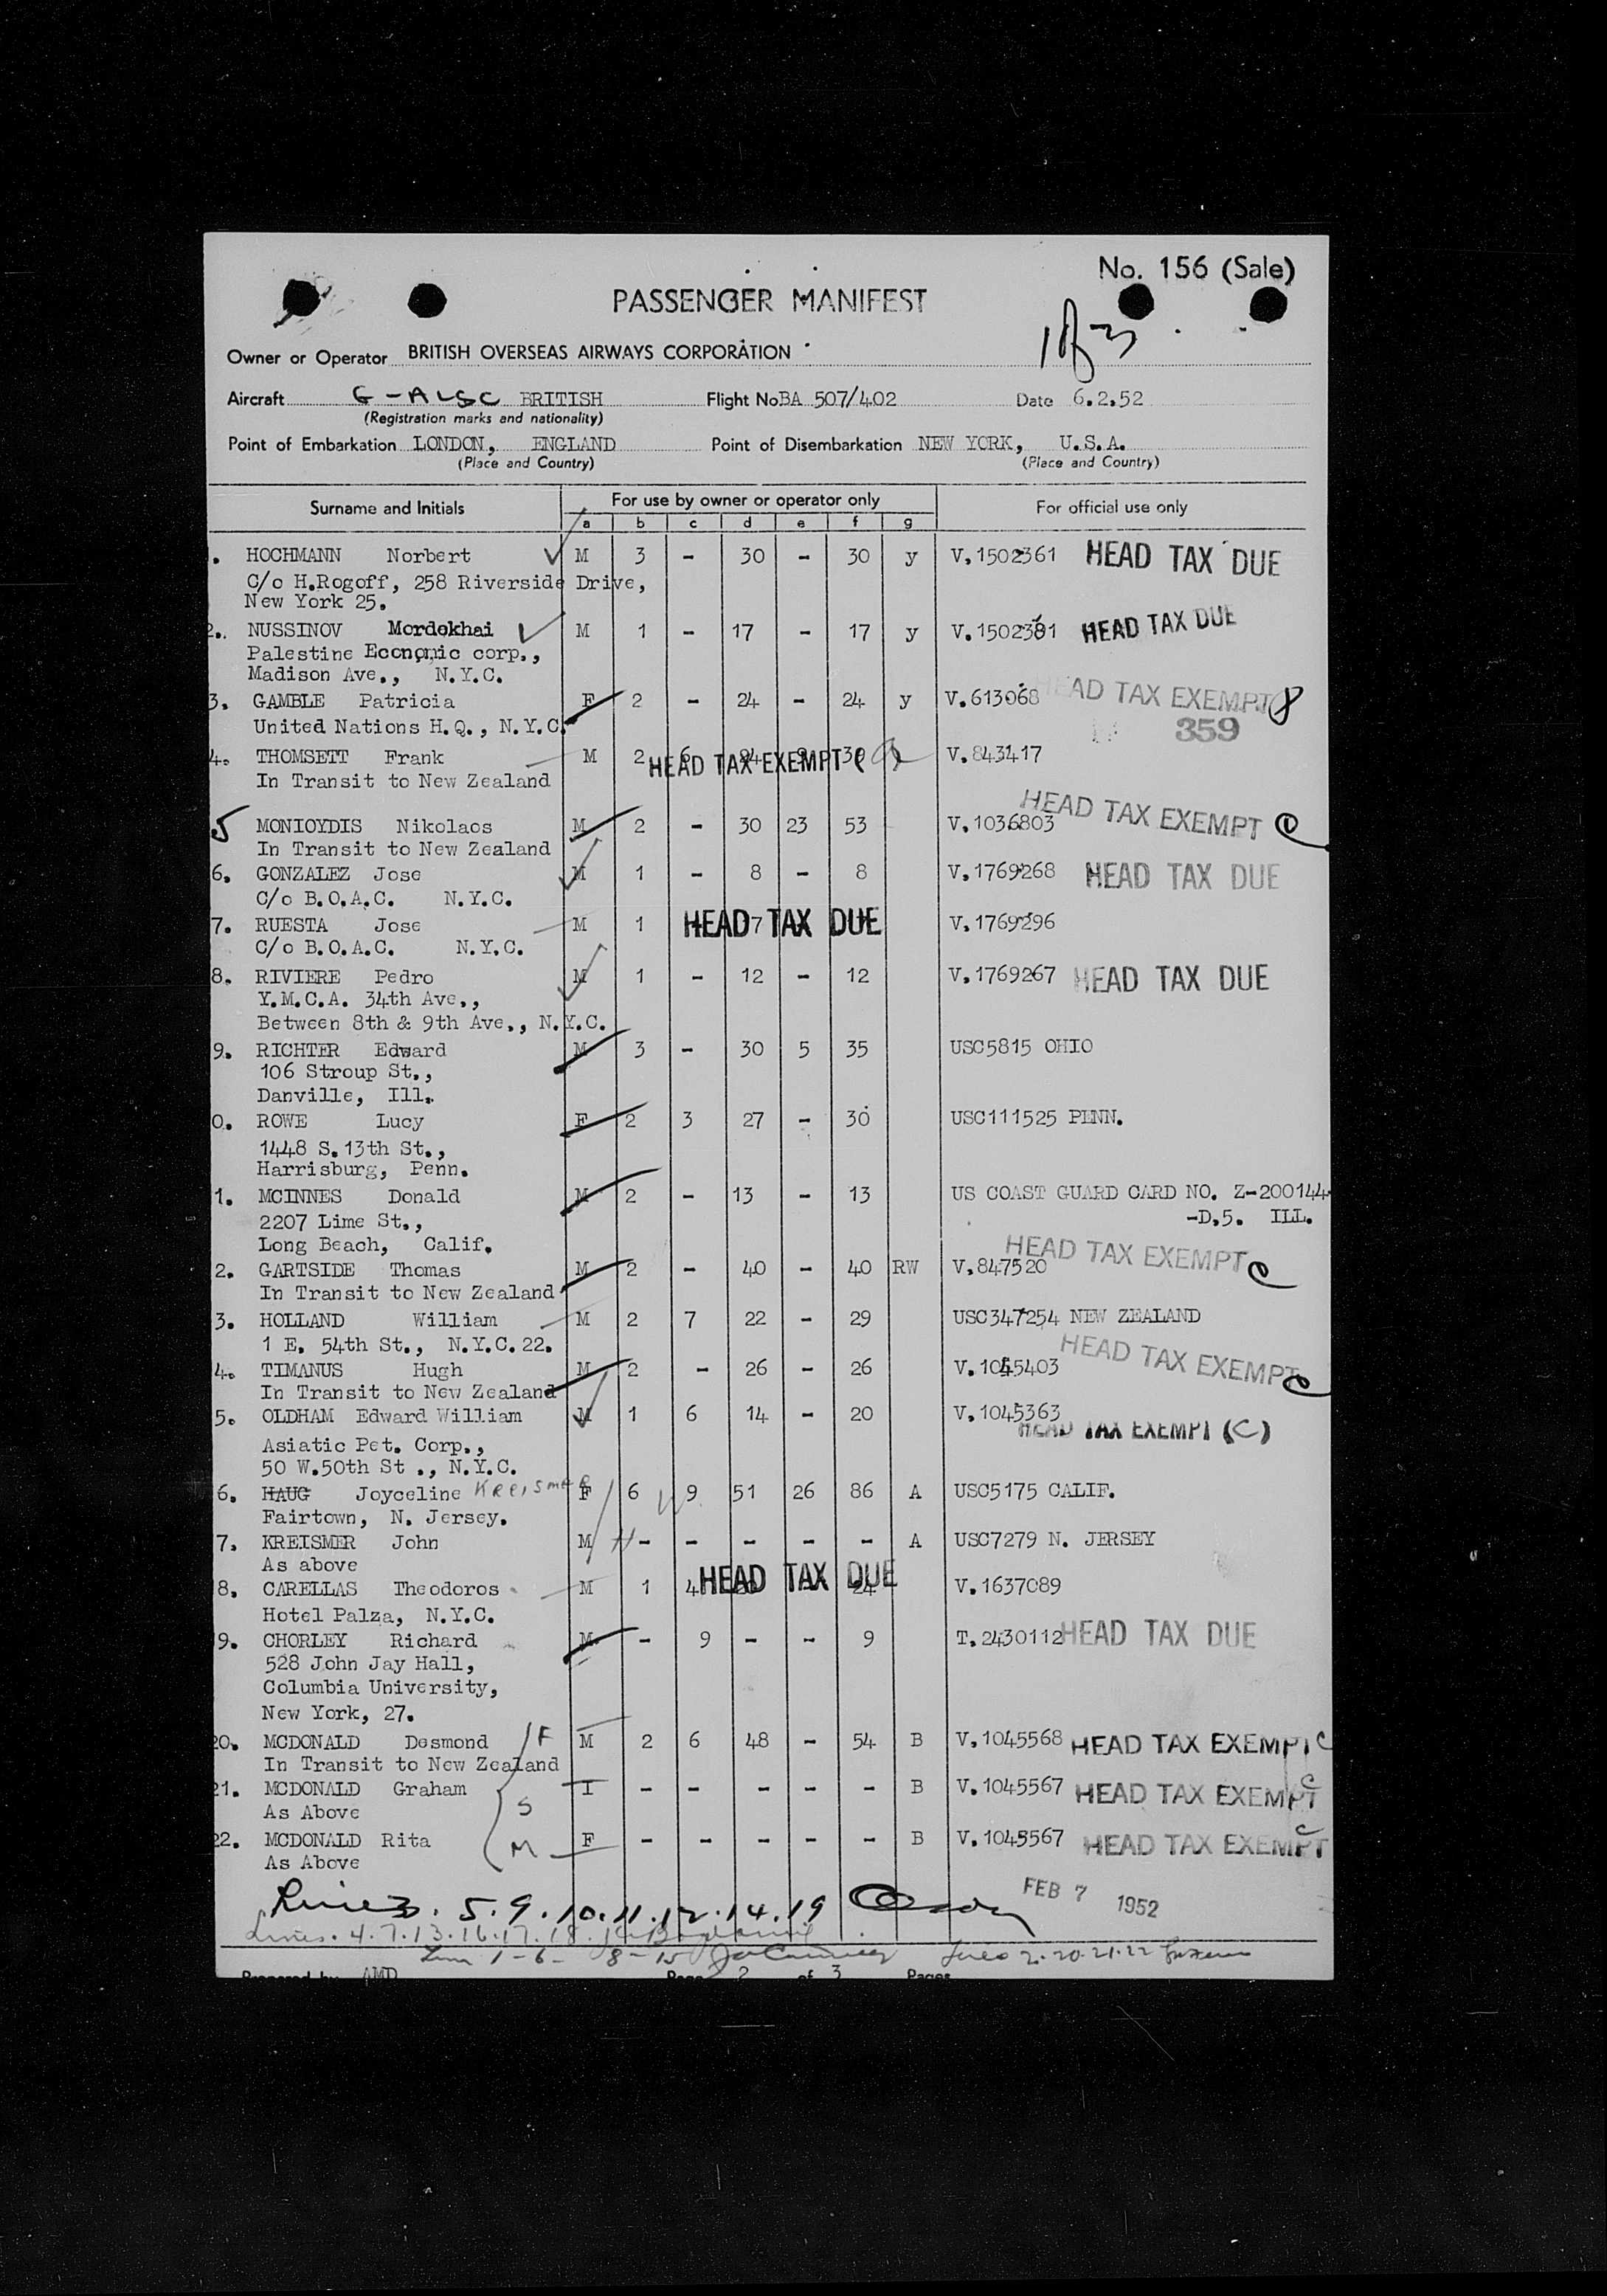 No. 156 (Sale)
PASSENGER MANIFEST
Owner or Operator BRITISH OVERSEAS AIRWAYS CORPORATION
Aircraft G-ALSC BRITISH Flight No BA 507/402 Date 6.2.52
(Registration marks and nationality)
Point of Embarkation LONDON, ENGLAND Point of Disembarkation NEW YORK, U.S.A.
(Place and Country) (Place and Country)
Surname and Initials For use by owner or operator only For official use only
a b c d e f g
. HOCHMANN Norbert M 3 - 30 - 30 y V.1502361 HEAD TAX DUE
C/o H.Rogoff, 258 Riverside Drive,
New York 25.
2. NUSSINOV Mordekhai M 1 - 17 - 17 y V.1502381 HEAD TAX DUE
Palestine Economic corp.,
Madison Ave., N.Y.C.
3. GAMBLE Patricia F 2 - 24 - 24 y V.613068 HEAD TAX EXEMPT
United Nations H.Q., N.Y.C. 359
4. THOMSETT Frank M 2 HEAD TAX EXEMPT V.843417
In Transit to New Zealand
5 MONIOYDIS Nikolaos M 2 - 30 23 53 V.1036803 HEAD TAX EXEMPT
In Transit to New Zealand
6. GONZALEZ Jose M 1 - 8 - 8 V.1769268 HEAD TAX DUE
C/o B.O.A.C. N.Y.C.
7. RUESTA Jose M 1 HEAD TAX DUE V.1769296
C/o B.O.A.C. N.Y.C.
8. RIVIERE Pedro M 1 - 12 - 12 V.1769267 HEAD TAX DUE
Y.M.C.A. 34th Ave.,
Between 8th & 9th Ave., N.Y.C.
9. RICHTER Edward M 3 - 30 5 35 USC5815 OHIO
106 Stroup St.,
Danville, Ill.
0. ROWE Lucy F 2 3 27 - 30 USC111525 PENN.
1448 S.13th St.,
Harrisburg, Penn.
1. MCINNES Donald M 2 - 13 - 13 US COAST GUARD CARD NO. Z-200144
-D.5. ILL.
2207 Lime St.,
Long Beach, Calif.
2. GARTSIDE Thomas M 2 - 40 - 40 RW V.847520 HEAD TAX EXEMPT
In Transit to New Zealand
3. HOLLAND William M 2 7 22 - 29 USC347254 NEW ZEALAND
1 E. 54th St., N.Y.C.22.
4. TIMANUS Hugh M 2 - 26 - 26 V.1045403 HEAD TAX EXEMPT
In Transit to New Zealand
5. OLDHAM Edward William M 1 6 14 - 20 V.1045363
HEAD TAX EXEMPT (C)
Asiatic Pet. Corp.,
50 W.50th St ., N.Y.C.
6. HAUG Joyceline Kreismer F 6 W 9 51 26 86 A USC5175 CALIF.
Fairtown, N. Jersey.
7. KREISMER John M H - - - - - A USC7279 N. JERSEY
As above
8. CARELLAS Theodoros M 1 4 HEAD TAX DUE 24 V.1637089
Hotel Palza, N.Y.C.
9. CHORLEY Richard M - 9 - - 9 T.2430112 HEAD TAX DUE
528 John Jay Hall,
Columbia University,
New York, 27.
20. MCDONALD Desmond F M 2 6 48 - 54 B V.1045568 HEAD TAX EXEMPT C
In Transit to New Zealand
21. MCDONALD Graham I - - - - - B V.1045567 HEAD TAX EXEMPT C
As Above S
22. MCDONALD Rita M F - - - - - B V.1045567 HEAD TAX EXEMPT C
As Above
FEB 7 1952
Lines 3. 5. 9. 10. 11. 12. 14. 19
Lines. 4. 7. 13. 16. 17. 18.
1-6- 8-15 Lines 2. 20. 21. 22
Prepared by AMD Page 2 of 3 Pages